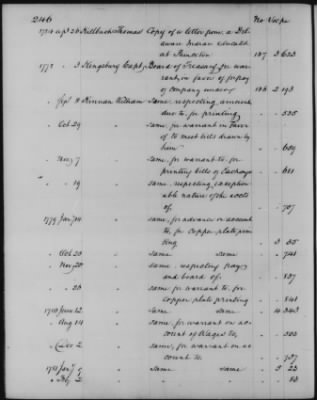 246 No Vol pa
1784 apl 26 Killbuck Thomas Copy of a letter from a Del-
aware Indian educated
at Princeton 167 3 623
1778 3 Kingsbury Capt Board of Treasury for war-
rant, in favor of, for pay
of company under 136 2 193
" Sep 11 Kinnan William Same, respecting amount
due to, for printing " " 535
" Oct 29 " same, for warrant in favor
of to meet bills drawn by
him " " 609
" Nov 7 " same, for warrant to, for
printing bills of Exchange " "
" " 19 " same, respecting exception-
able nature of the accts
of, " " 707
1779 Jany 14 " same, for advance on account
to, for copper plate prin-
ting " 3 35
" Oct 20 " same same " " 741
" Nov 20 " same, respecting pay,
and board of, " " 837
" " 26 " same, for warrant to, for
copper plate printing " " 841
1780 June 12 " same same " 4 343
" Aug 14 " same, for warrant on ac-
count of Wages to, " "
" Dec 2 " same, for warrant on ac-
count to, " " 757
1781 Jany 5 " same same " 5 23
" Feby 2 " " " " "